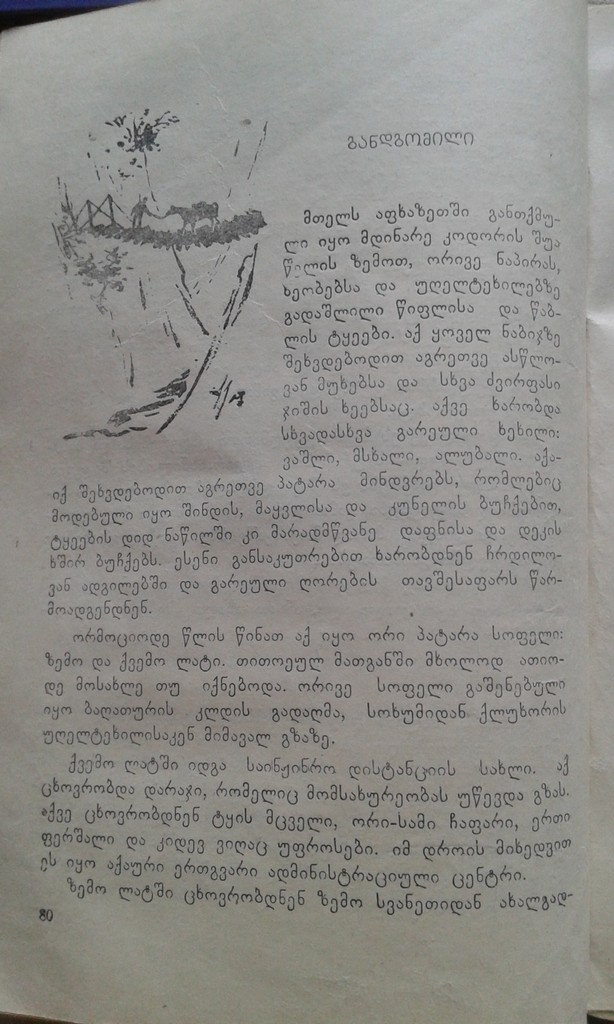 განდგომილი
მთელს აფხაზეთში განთქმუ-
ლი იყო მდინარე კოდორის შუა
წელის ზემოთ, ორივე ნაპირას,
ხეობებსა და უღელტეხილებზე
გადაშლილი წიფლისა და წაბ-
ლის ტყეები. აქ ყოველ ნაბიჯზე
შეხვდებოდით აგრეთვე ასწლო-
ვან მუხებსა და სხვა ძვირფასი
ჯიშის ხეებსაც. აქვე ხარობდა
სხვადასხვა გარეული ხეხილი:
ვაშლი, მსხალი, ალუბალი. აქა-
იქ შეხვდებოდით აგრეთვე პატარა მინდვრებს, რომლებიც
მოდებული იყო შინდის, მაყვლისა და კუნელის ბუჩქებით,
ტყეების დიდ ნაწილში კი მარადმწვანე დაფნისა და დეკის
ხშირ ბუჩქებს. ესენი განსაკუთრებით ხარობდნენ ჩრდილო-
ვან ადგილებში და გარეული ღორების თავშესაფარს წარ-
მოადგენდნენ.
ორმოციოდე წლის წინათ აქ იყო ორი პატარა სოფელი:
ზემო და ქვემო ლატი. თითოეულ მათგანში მხოლოდ ათიო-
დე მოსახლე თუ იქნებოდა. ორივე სოფელი გაშენებული
იყო ბაღათურის კლდის გადაღმა, სოხუმიდან ქლუხორის
უღელტეხილისაკენ მიმავალ გზაზე.
ქვემო ლატში იდგა საინჟინრო დისტანციის სახლი. აქ
ცხოვრობდა დარაჯი, რომელიც მომსახურეობას უწევდა გზას.
აქვე ცხოვრობდნენ ტყის მცველი, ორი-სამი ჩაფარი, ერთი
ფერშალი და კიდევ ვიღაც უფროსები. იმ დროის მიხედვით
ეს იყო აქაური ერთგვარი ადმინისტრაციული ცენტრი.
ზემო ლატში ცხოვრობდნენ ზემო სვანეთიდან ახალგად-
80